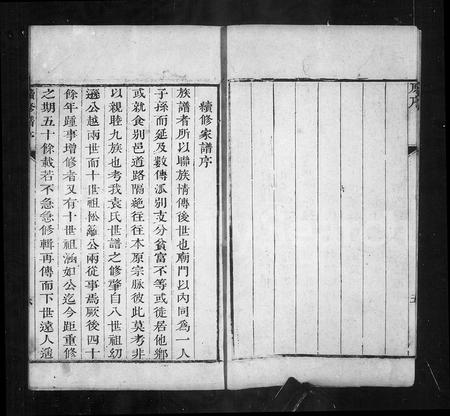 續修家譜序
族譜者所以聯族情傳後世也廟門以內同為一人
子孫而延及數傳派別支分貧富不等或徙居他鄉
或就食別邑道路隔絶往往本原宗脉彼此莫考非
以親睦九族也考我袁氏世譜之修肇自八世祖紉
遜公越兩世而十世祖松公兩從事焉厥後四十
餘年踵事增修者又有十世祖涵如公迄今距重修
之期五十餘載若不急急修輯再傳而下世遠人